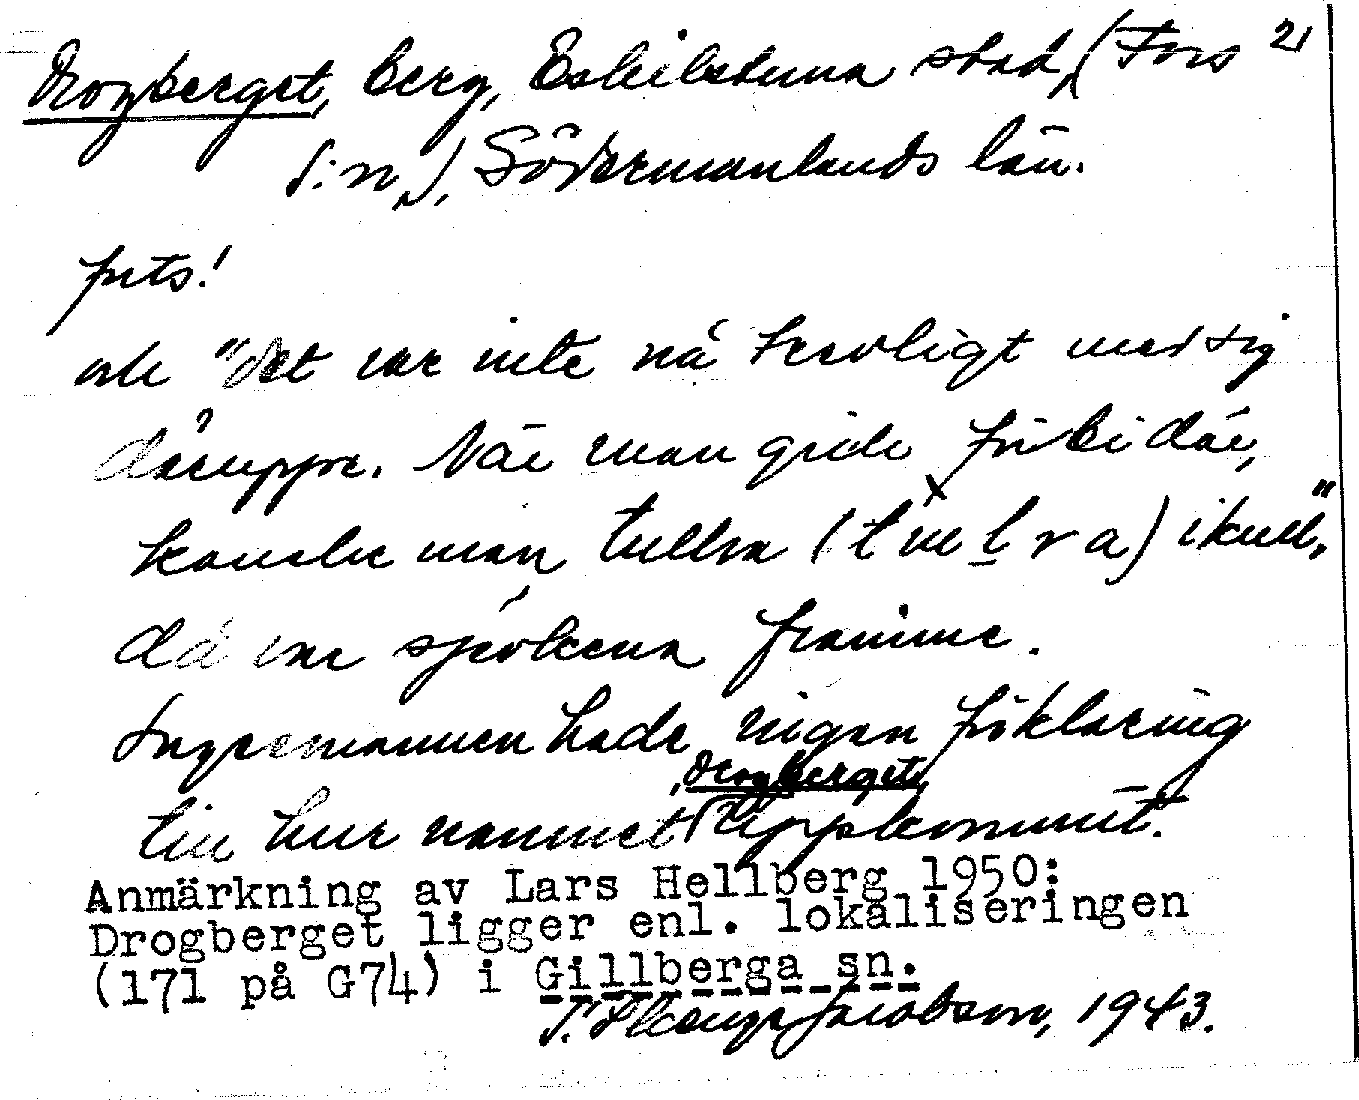 Drogberget, berg, Eskilstuna stad, (Fors 2)
s:n), Södermanlands län.
forts!
och "det var inte nå trevligt med sig
däruppe. När man gick förbi där,
kanske man tullra (tul̲ra) ikull,"
då var spökena framme.
Sagesmannen hade ingen förklaring
till hur namnet Drogberget uppkommit.
Anmärkning av Lars Hellberg 1950:
Drogberget ligger enl. lokaliseringen
(171 på G74) i Gillberga sn.
Jacobson, 1943.